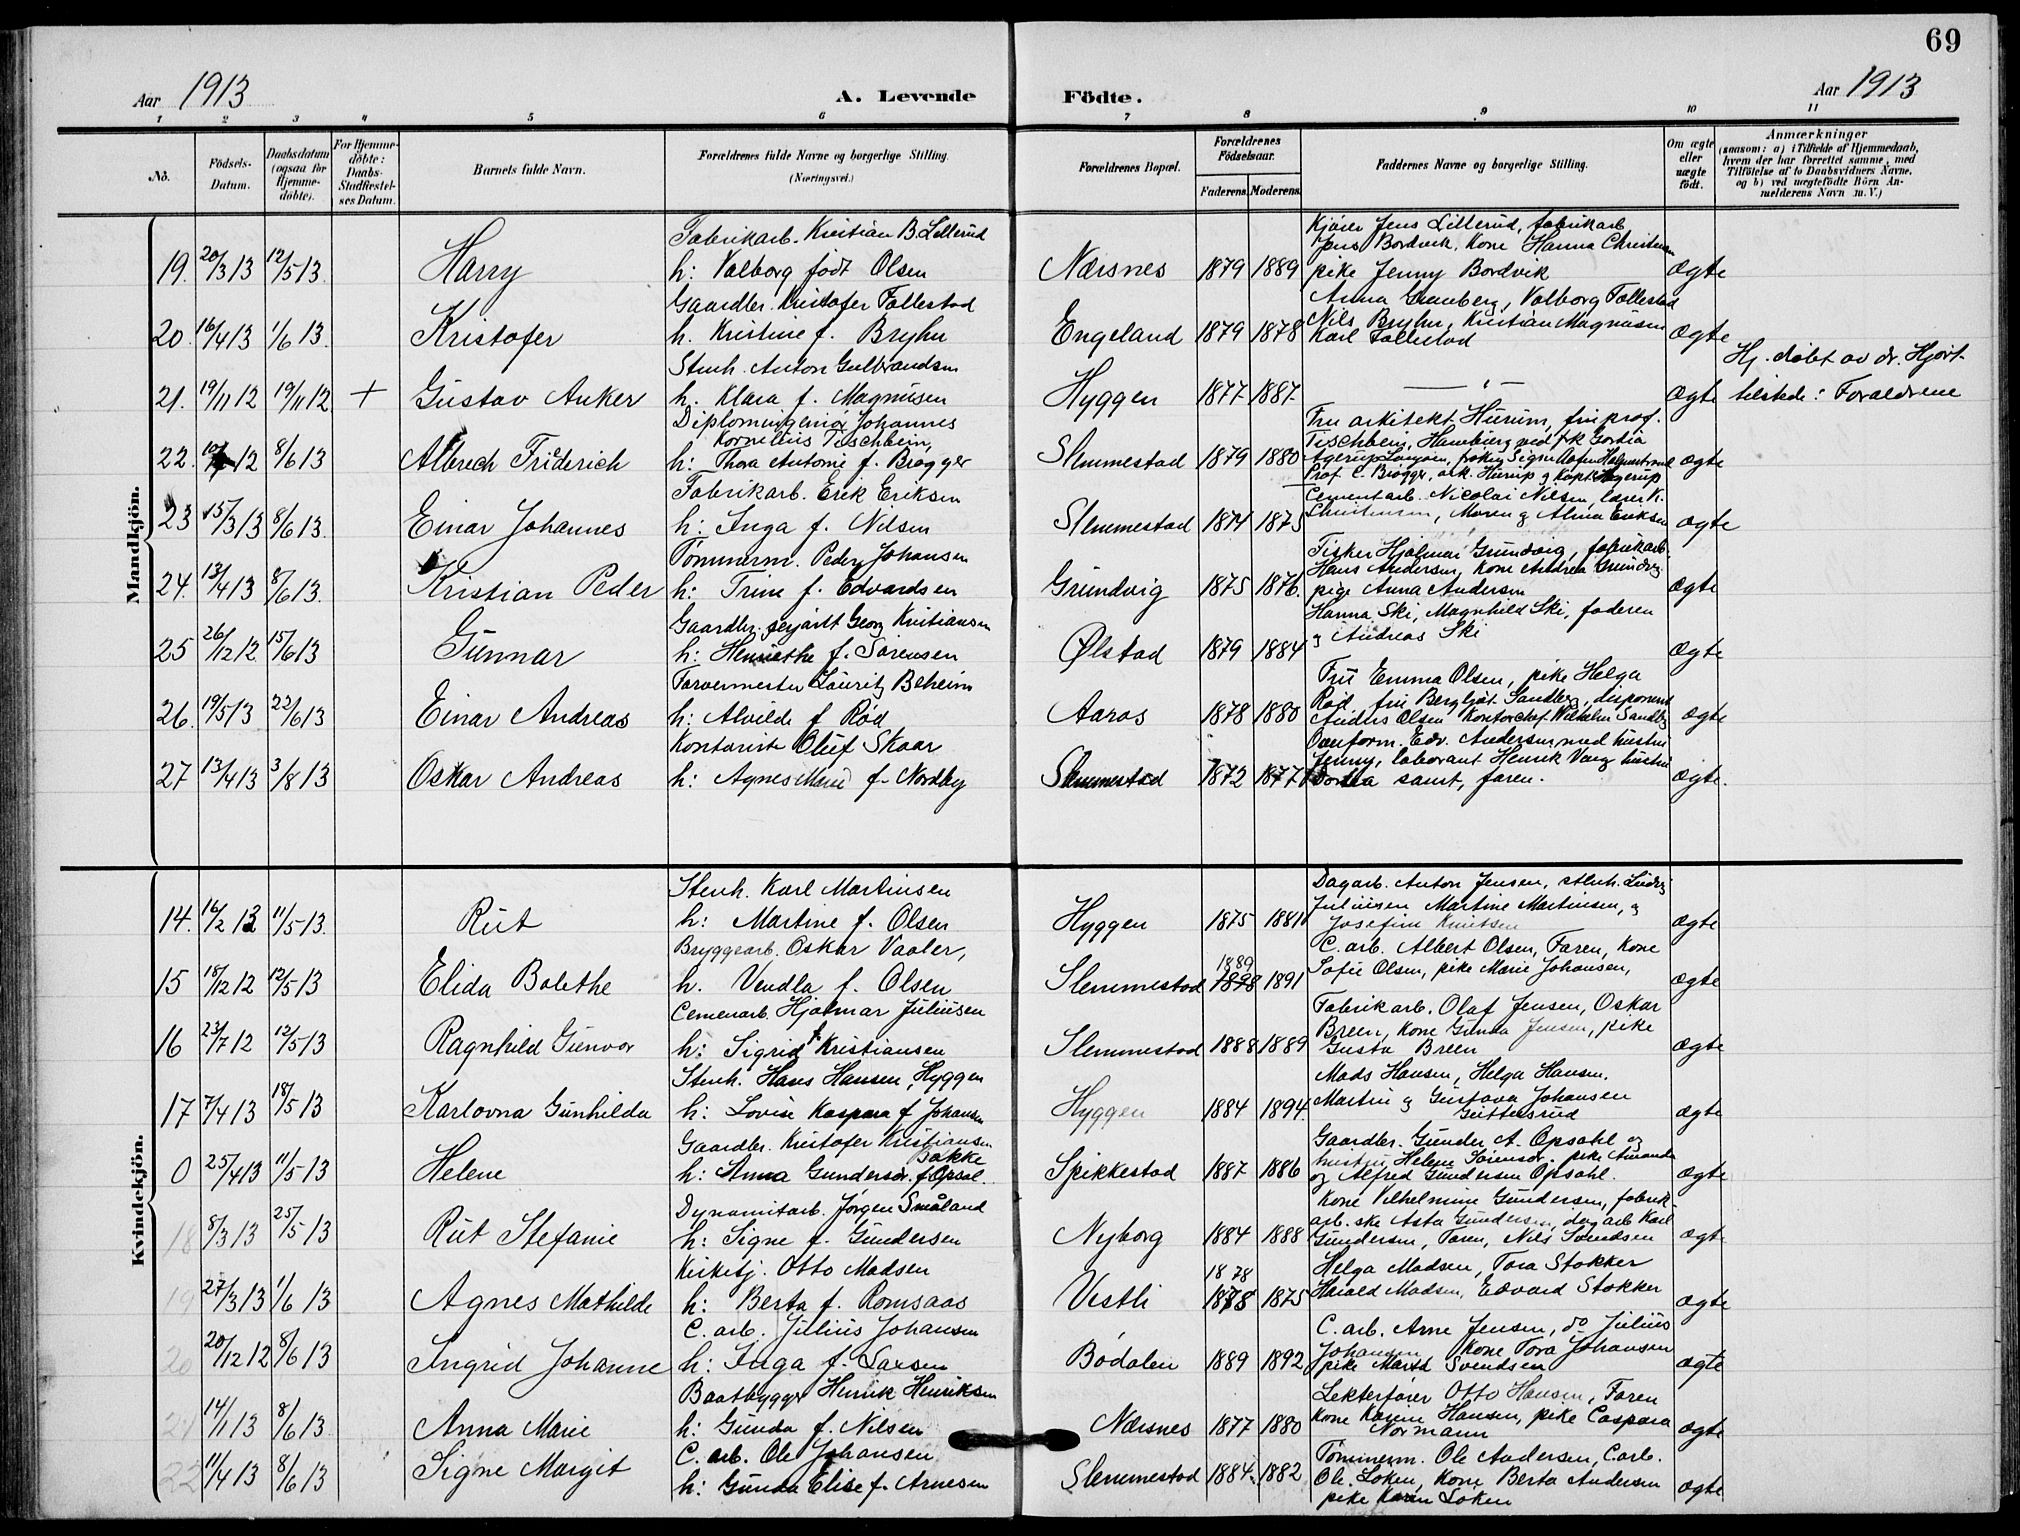 69
Aar 1913
A. Levende Födte.
Aar 1913
1 2 3 4 5 6 7 8 9 10 11
No.
Födsels-Datum.
Daabsdatum (ogsaa for Hjemme-döbte).
For Hjemme-döbte: Daabs-Stadfæstel-ses Datum.
Barnets fulde Navn.
Forældrenes fulde Navne og borgerlige Stilling.
(Næringsvei.)
Forældrenes Bopæl.
Forældrenes Födselsaar.
Faderens. Moderens.
Faddernes Navne og borgerlige Stilling.
Om ægte eller uægte födt.
Anmærkninger
(saasom: a) i Tilfælde af Hjemmedaab,
hvem der har forrettet samme, med
Tilföielse af to Daabsvidners Navne,
og b) ved uægtefödte Börn An-
melderens Navn m.V.)
Mandkjön.
Fabrikarb. Kristian B. Lillerud
Kjører Jens Lillerud, fabrikarb
Jens Bordvik, Kone Hanna Christensen
19. 20/3 13 12/5 13. Harry h: Valborg født Olsen Nærsnes 1879 1889 pike Jenny Bordvik ægte
Gaardbr. Kristofer Follestad
Anna Granberg, Valborg Follestad
Nils Bryhn, Kristian Magnusen
20. 16/4 13 1/6 13. Kristofer h. Kristine f. Bryhn Engeland 1879 1878 Karl Follestad ægte
Stenh. Anton Gulbrandsen
Hj. døbt av dr. Hjort
21. 19/11 12 19/11 12 + Gustav Anker h. Klara f. Magnusen Hyggen 1877 1887. — " — ægte tilstede: Forældrene
Diplomingeniør Johannes
Kornelius Tischbein,
Fru arkitekt Hurum, fru prof.
Tischbein, Hamburg ved frk
22. 12 8/6 13 Albrech Friderich h: Thora Antonie f. Brøgger Slemmestad 1879 1880 ægte
Prof. C. Brøgger, ark. Hurup
Fabrikarb. Erik Eriksen
Cementarb. Nicolai Nilsen,
23 15/3 13 8/6 13. Einar Johannes h: Inga f. Nilsen Slemmestad 1874 1875 Christensen, Maren & Alma Eriksen ægte
Tømmerm. Peder Johansen
Fisker Hjalmar Grundvig, fabrikarb.
Hans Andersen, Kone Andrea Grundvig
24. 13/4 13 8/6 13. Kristian Peder h: Trine f. Edvardsen Grundvig 1875 1876. pige Anna Andersen ægte
Gaardbr. Georg Kristiansen
Hanna Ski, Magnhild Ski, faderen
& Andreas Ski
25 26/12 12 15/6 13 Gunnar h: Henriette f. Sørensen Ølstad 1879 1884 ægte
Farvermester Lauritz Beheim
Fru Emma Olsen, pike Helga
Rød, fru Bergljot Sandberg, disponent
26. 19/5 13 22/6 13 Einar Andreas h: Alvilde f Rød Aaros 1878 1880 Anders Olsen Kontorchef Wilhelm Sandberg ægte
Kontorist Oluf Skaar
Ovnform. Edv. Andersen med hustru
Jenny, laborant Henrik Vang hustru
27 13/4 13 3/8 13 Oskar Andreas h: Agnes Marie f. Nordby Slemmestad 1872 1877 samt, faren. ægte.
Kvindekjön.
Stenh. Karl Martinsen
Dagarb. Anton Jensen, stenh. Ludvig
Juliusen Martine Martinsen, &
14. 16/2 13 11/5 13. Rut h: Martine f. Olsen Hyggen 1875 1881 Josefine Knutsen ægte
Bryggearb. Oskar Vaaler,
C. arb. Albert Olsen, Faren, Kone
1889
15 18/12 12 12/5 13 Elida Bolethe h. Vendla f. Olsen Slemmestad 1898 1891 Sofie Olsen, pike Marie Johansen, ægte
Cemenarb. Hjalmar Juliusen
Fabrikarb. Olaf Jensen, Oskar
Breen, Kone Gunda Jensen, pike
16 23/7 12 12/5 13 Ragnhild Gunvor h: Sigrid f Kristiansen Slemmestad 1888 1889 Gusta Breen ægte
Stenh. Hans Hansen, Hyggen
Mads Hansen, Helga Hansen.
17 7/4 13 18/5 13 Karlovna Gunhilda h: Lovise Kaspara f Johansen Hyggen 1884 1894. Martin & Gustava Johansen Guttersrud ægte
Gaardbr. Kristofer Kristiansen Bakke
Gaardbr. Gunder A. Opsahl og
hustru Helene Sørensdr. pike Amanda
0 25/4 13 11/5 13 Helene h: Anna Gundersdr. f Opsal. Spikkestad 1887 1886 og Alfred Gundersen Opsahl. ægte
Dynamitarb. Jørgen Småland
Kone Vilhelmine Gundersen, fabrik
arb.ske Asta Gundersen, dag arb Karl
18 8/3 13 25/5 13 Rut Stefanie h: Signe f. Gundersen Nyborg 1884 1888 Gundersen, Faren, Nils Svendsen ægte
Kirketj. Otto Madsen
Helga Madsen, Tora Stokker
1878
19 27/3 13 1/6 13 Agnes Mathilde h: Berta f. Romsaas Vestli 1878 1875 Harald Madsen, Edvard Stokker ægte
C. arb. Julius Johansen
C. arb. Arne Jensen, do Julius
Johansen Kone Tora Johansen
20 20/12 12 8/6 13 Ingrid Johanne h: Inga f. Larsen Bødalen 1889 1892 pike Marta Svendsen ægte
Baatbygger Henrik Henriksen
Lekterfører Otto Hansen, Faren
21 14/1 13 8/6 13 Anna Marie h: Gunda f. Nilsen Nærsnes 1877 1880 Kone Karen Hansen, pike Caspara Normann ægte
C. arb. Ole Johansen
Tømmerm. Ole Andersen, C. arb.
22 11/4 13 8/6 13 Signe Margit h: Gunda Elise f. Arnesen Slemmestad 1884. 1882 Ole Løken, Kone Berta Andersen ægte
pike Karen Løken